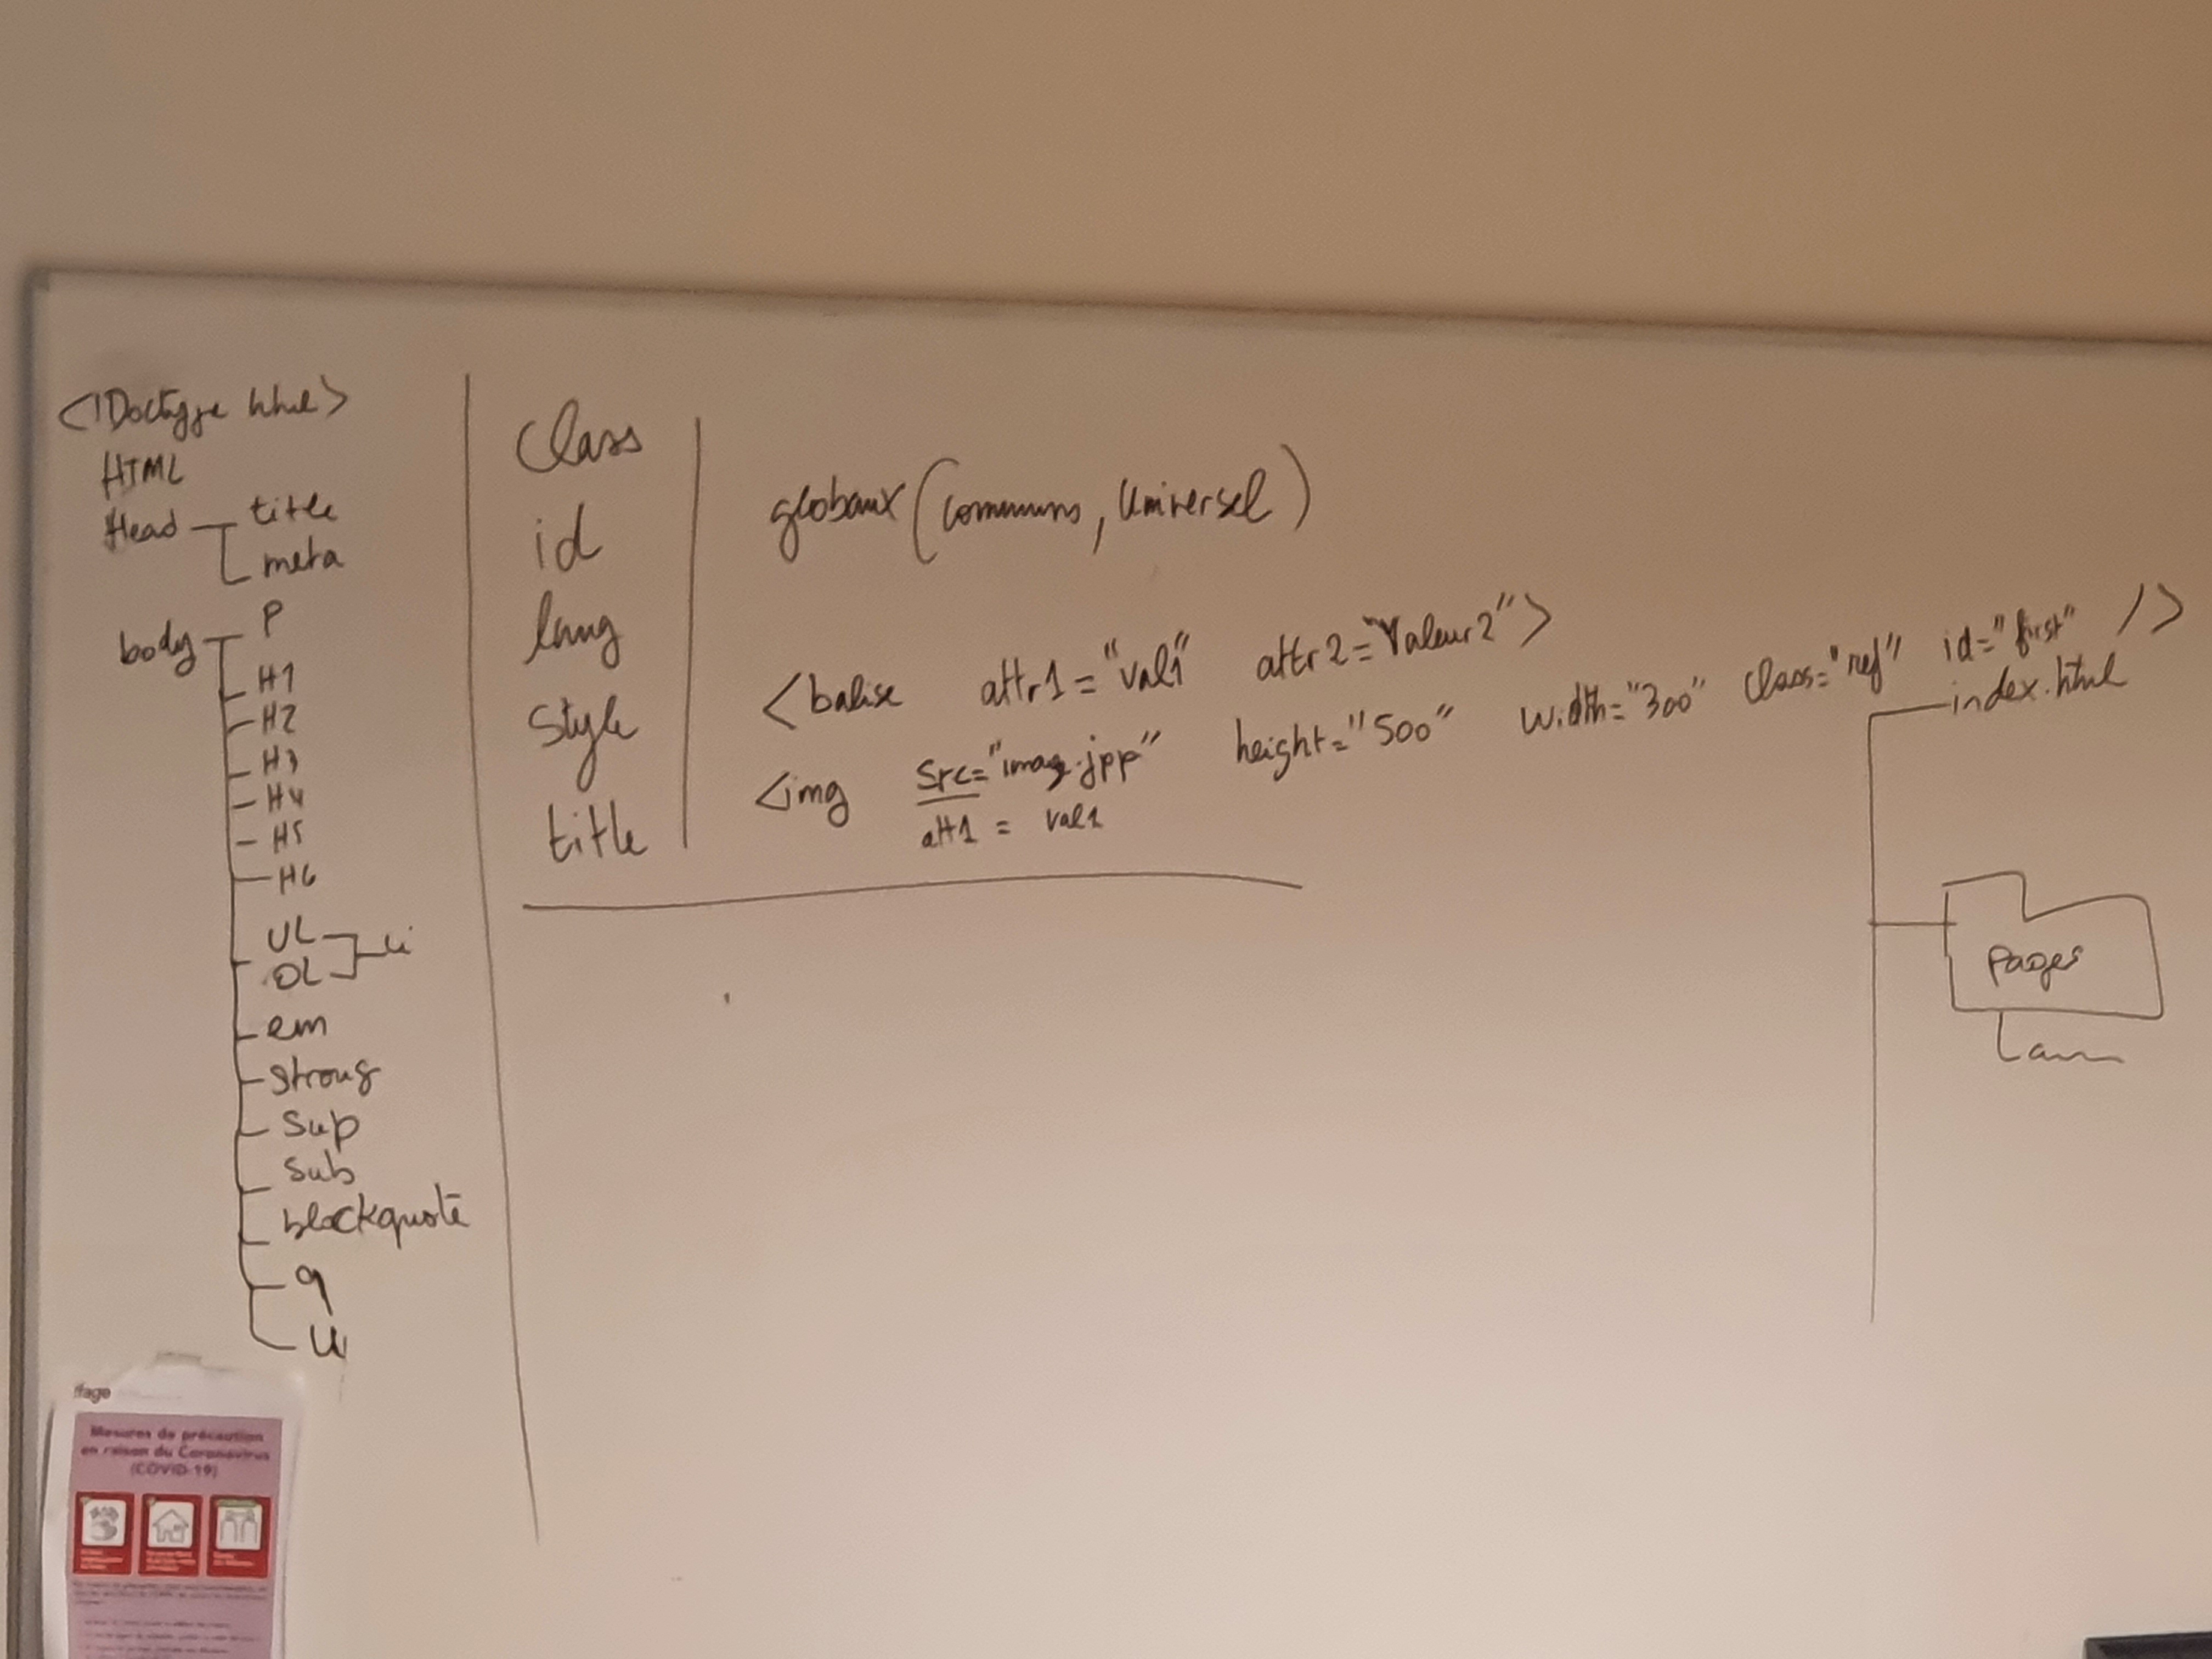 <!Doctype html>
HTML
Head title
meta
body P
H1
H2
H3
H4
H5
H6
UL li
OL
em
strong
sup
sub
blockquote
q
u
class
id
lang
style
title
globaux (communs, Universel)
<balise attr1="val1" attr2="Valeur2">
<img src="imag.jpp" height="500" width="300" class="ref" id="first" />
att1 = val1
index.html
Pages
Mesures de précaution
en raison du Coronavirus
(COVID-19)